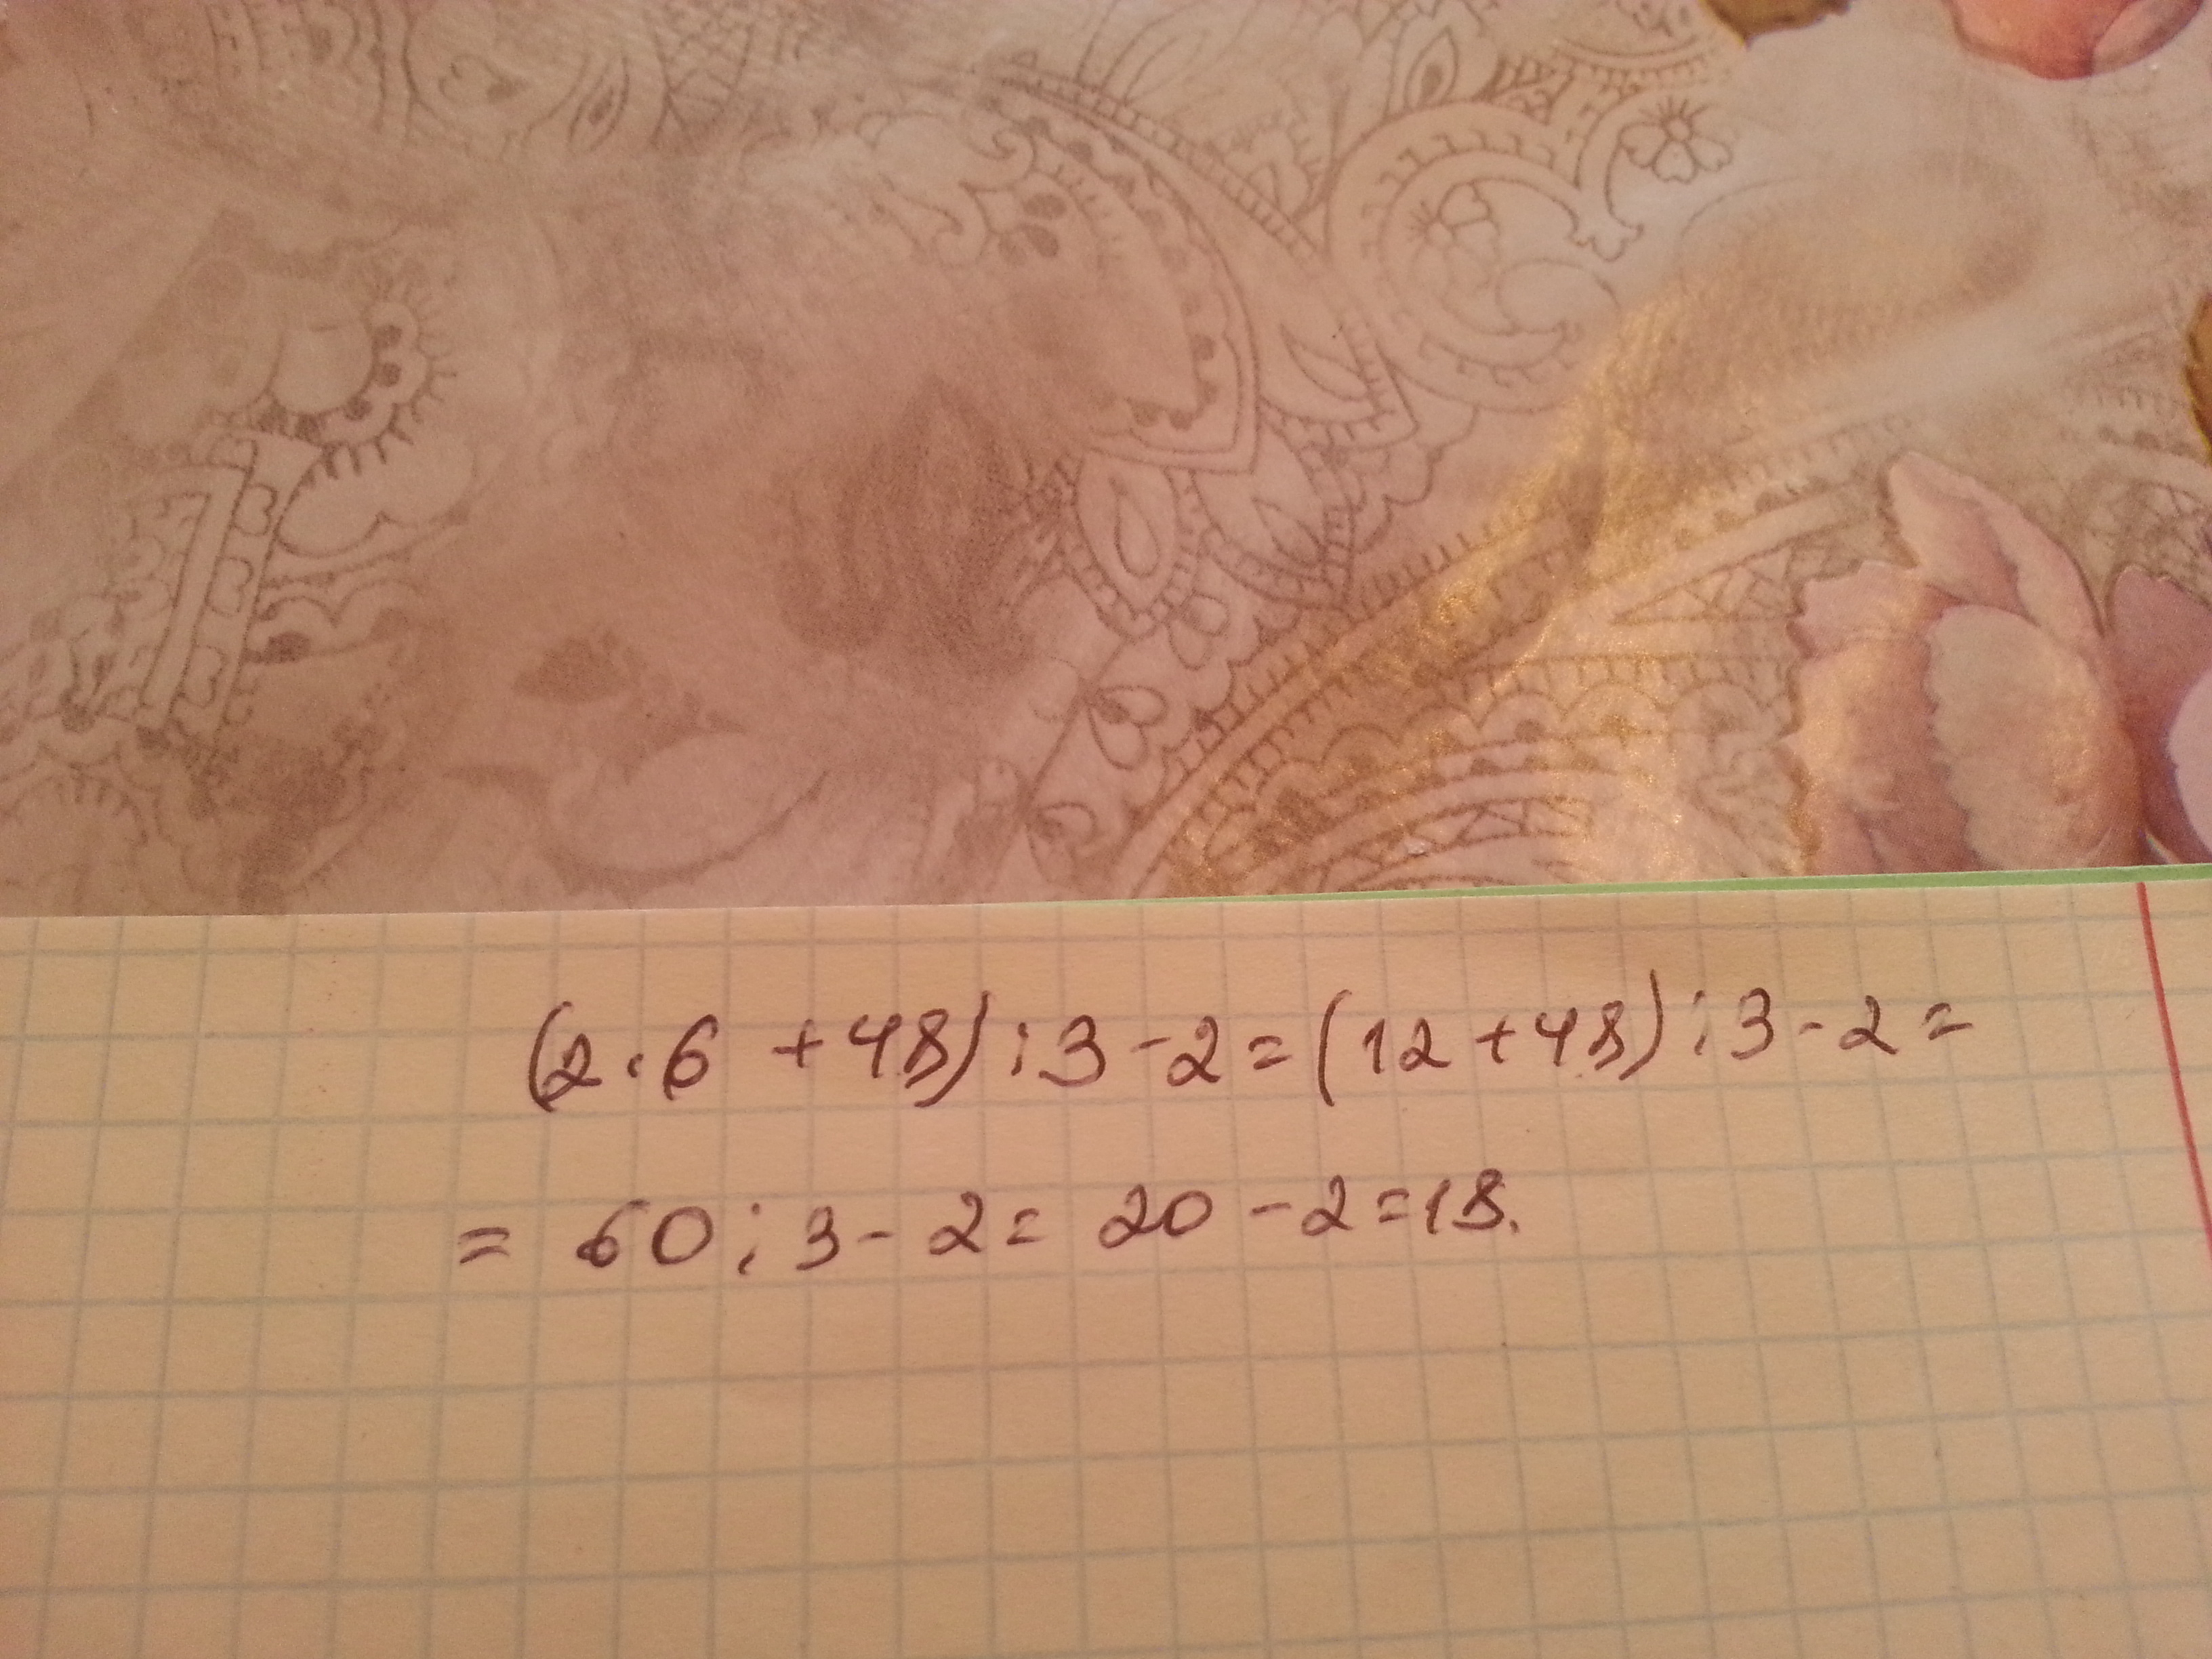 (2·6 +48):3-2=(12+48):3-2=
= 60:3-2= 20-2=18.